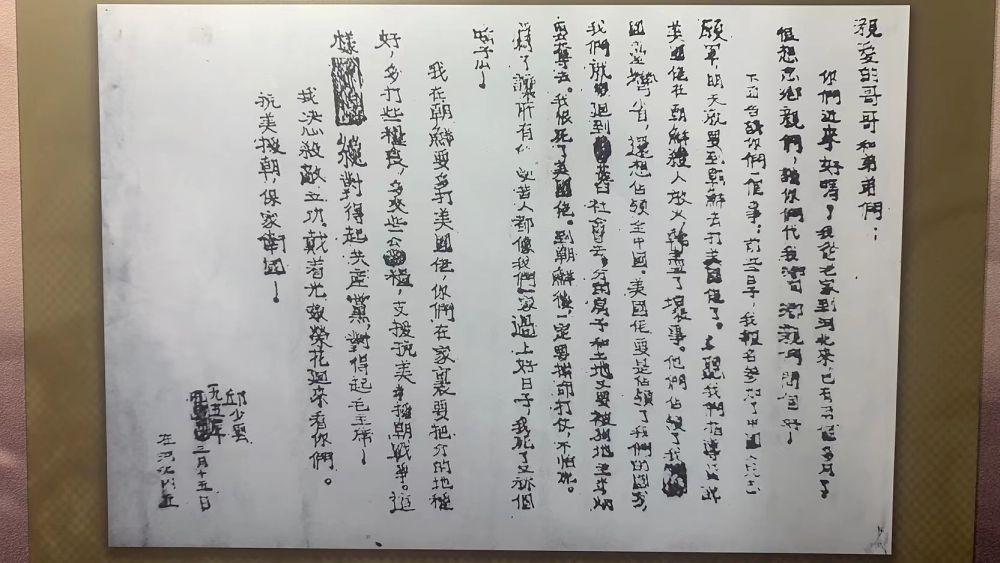 親愛的哥哥和弟弟們：
你們近來好嗎？我從老家到河北來，已有
很想念鄉親們，請你們代我問鄉親們問個好！
下面告訴你們一個事：前些日子，我報名參加了中國
願軍，明天就要到朝鮮去打美國佬了。聽我們指導員
美國佬在朝鮮殺人放火幹盡了壞事。他們佔領了我
國臺灣省，還想佔領全中國。美國佬要是佔領了我們的國家，
我們就回到舊社會去，分的房子和土地又要被地主
去。我恨死了美國佬。到朝鮮後，一定要拚命打仗，不怕死。
了讓所有受苦人都像我們家過上好日子，我死了又個
我在朝鮮要多打美國佬，你們在家裏要把分的地種
好，多打些糧食，多交些公糧，支援抗美援朝戰爭。這
樣纔對得起共產黨，對得起毛主席！
我決心殺敵立功，戴着光榮花回來看你們。
抗美援朝，保家衛國！
邱少雲
一九五年
三月十五日
在河北